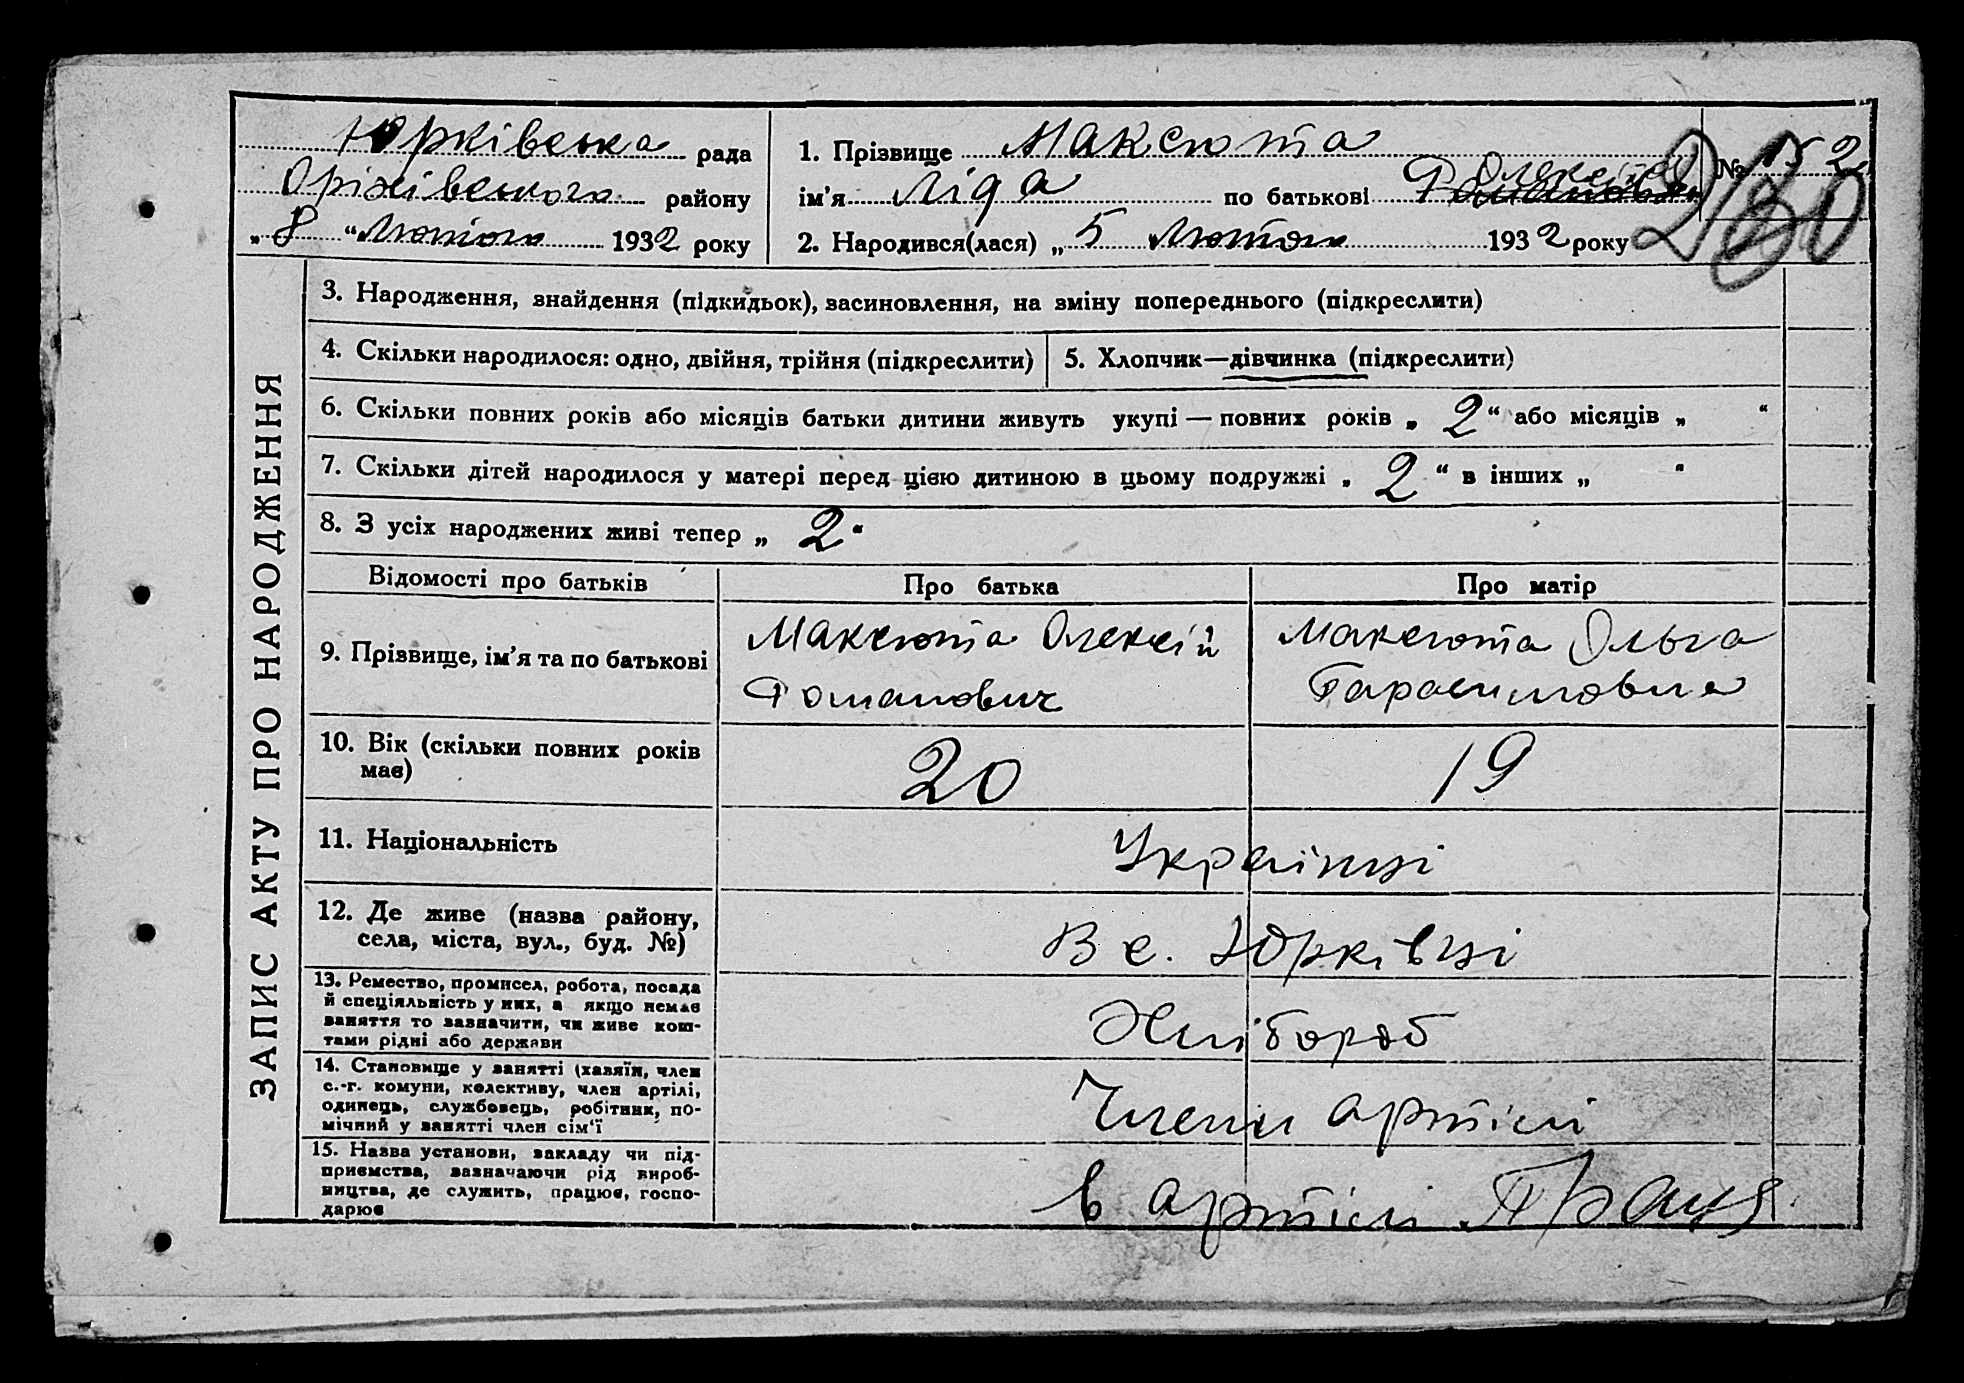 Юрківська рада
Оріхівського району
„ 8 “ Лютого 1932 року
1. Прізвище Максюта
ім'я Ліда по батькові Олексіїв Романовна
2. Народився(лася) „ 5 Лютого 1932 року
№ 15 2
ЗАПИС АКТУ ПРО НАРОДЖЕННЯ
3. Народження, знайдення (підкидьок), засиновлення, на зміну попереднього (підкреслити)
4. Скільки народилося: одно, двійня, трійня (підкреслити)
5. Хлопчик—дівчинка (підкреслити)
6. Скільки повних років або місяців батьки дитини живуть укупі — повних років „ 2 “ або місяців „ “
7. Скільки дітей народилося у матері перед цією дитиною в цьому подружжі „ 2 “ в інших „ “
8. З усіх народжених живі тепер „ 2 “
Відомості про батьків
Про батька
Про матір
9. Прізвище, ім'я та по батькові
Максюта Олексій
Романович
Максюта Ольга
Гарасимовна
10. Вік (скільки повних років
має)
20
19
11. Національність
Українці
12. Де живе (назва району,
села, міста, вул., буд. №)
В с. Юрківці
13. Ремество, промисел, робота, посада
й спеціяльність у них, а якщо немає
заняття то зазначити, чи живе кош-
тами рідні або держави
Хлібороб
14. Становище у занятті (хазяїн, член
с.-г. комуни, колективу, член артілі,
одинець, службовець, робітник, по-
мічний у занятті член сім'ї
Члени артілі
15. Назва установи, закладу чи під-
приємства, зазначаючи рід вироб-
ництва, де служить, працює, госпо-
дарює
в артілі Праця